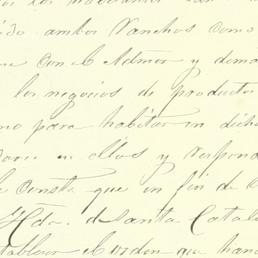 ambos Ranchos como
con el Admor y dema
los negocios de productos
mo para habitar en dicho
en ellos y responda
consta que en fin de
Hda. de Santa Catal
tablecer el orden que han